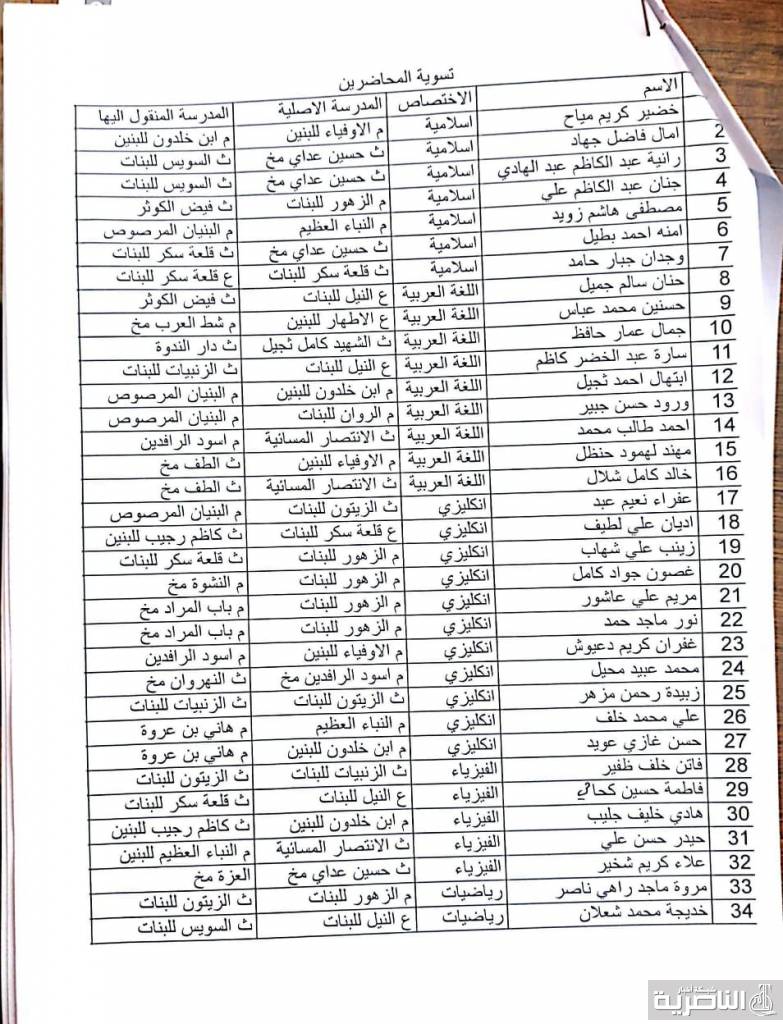 تسوية المحاضرين
الاسم الاختصاص المدرسة الاصلية المدرسة المنقول اليها
خضير كريم مياح اسلامية م الاوفياء للبنين م ابن خلدون للبنين
2 امال فاضل جهاد اسلامية ث حسين عداي مخ ث السويس للبنات
3 رانية عبد الكاظم عبد الهادي اسلامية ث حسين عداي مخ ث السويس للبنات
4 جنان عبد الكاظم علي اسلامية م الزهور للبنات ث فيض الكوثر
5 مصطفى هاشم زويد اسلامية م النباء العظيم م البنيان المرصوص
6 امنه احمد بطيل اسلامية ث حسين عداي مخ ث قلعة سكر للبنات
7 وجدان جبار حامد اسلامية ث قلعة سكر للبنات ع قلعة سكر للبنات
8 حنان سالم جميل اللغة العربية ع النيل للبنات ث فيض الكوثر
9 حسنين محمد عباس اللغة العربية ع الاطهار للبنين م شط العرب مخ
10 جمال عمار حافظ اللغة العربية ث الشهيد كامل ثجيل ث دار الندوة
11 سارة عبد الخضر كاظم اللغة العربية ع النيل للبنات ث الزنبيات للبنات
12 ابتهال احمد ثجيل اللغة العربية م ابن خلدون للبنين م البنيان المرصوص
13 ورود حسن جبير اللغة العربية م الروان للبنات م البنيان المرصوص
14 احمد طالب محمد اللغة العربية ث الانتصار المسائية م اسود الرافدين
15 مهند لهمود حنظل اللغة العربية م الاوفياء للبنين ث الطف مخ
16 خالد كامل شلال اللغة العربية ث الانتصار المسائية ث الطف مخ
17 عفراء نعيم عبد انكليزي ث الزيتون للبنات م البنيان المرصوص
18 اديان علي لطيف انكليزي ع قلعة سكر للبنات ث كاظم رجيب للبنين
19 زينب علي شهاب انكليزي م الزهور للبنات ث قلعة سكر للبنات
20 غصون جواد كامل انكليزي م الزهور للبنات م النشوة مخ
21 مريم علي عاشور انكليزي م الزهور للبنات م باب المراد مخ
22 نور ماجد حمد انكليزي م الزهور للبنات م باب المراد مخ
23 غفران كريم دعيوش انكليزي م الاوفياء للبنين م اسود الرافدين
24 محمد عبيد محيل انكليزي م اسود الرافدين مخ ث النهروان مخ
25 زبيدة رحمن مزهر انكليزي ث الزيتون للبنات ث الزنبيات للبنات
26 علي محمد خلف انكليزي م النباء العظيم م هاني بن عروة
27 حسن غازي عويد انكليزي م ابن خلدون للبنين م هاني بن عروة
28 فاتن خلف ظفير الفيزياء ث الزنبيات للبنات ث الزيتون للبنات
29 فاطمة حسين الفيزياء ع النيل للبنات ث قلعة سكر للبنات
30 هادي خليف جليب الفيزياء م ابن خلدون للبنين ث كاظم رجيب للبنين
31 حيدر حسن علي الفيزياء ث الانتصار المسائية م النباء العظيم للبنين
32 علاء كريم شخير الفيزياء ث حسين عداي مخ العزة مخ
33 مروة ماجد راهي ناصر رياضيات م الزهور للبنات ث الزيتون للبنات
34 خديجة محمد شعلان رياضيات ع النيل للبنات ث السويس للبنات
شبكة اخبار
الناصرية